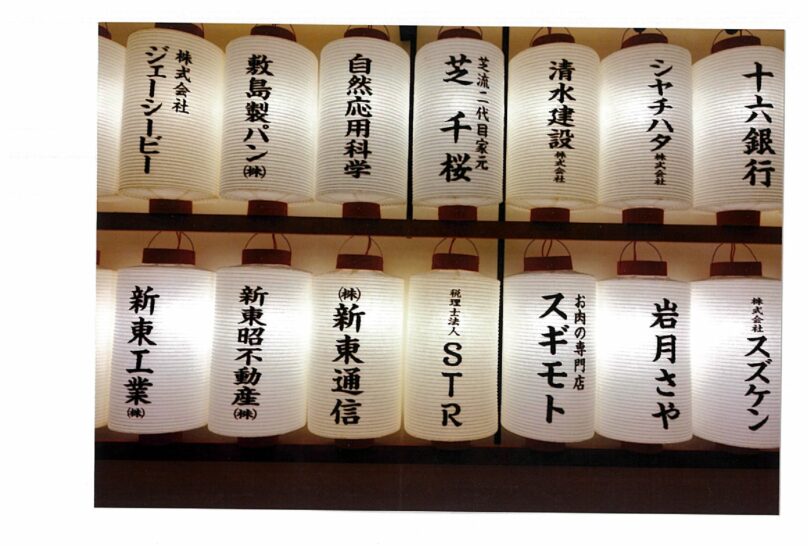 株式会社
ジェーシービー
敷島製パン㈱
自然応用科学
芝流二代目家元
芝千桜
清水建設株式会社
シヤチハタ株式会社
十六銀行
新東工業㈱
新東昭不動産㈱
㈱新東通信
税理士法人
STR
お肉の専門店
スギモト
岩月さや
株式会社スズケン